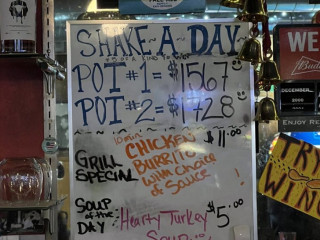 SHAKE-A DAY
POT #1 = $1567
POT #2 = $1728
CHICKEN $11.00
GRILL SPECIAL BURRITO
with choice
of Sauce !
SOUP of the DAY
Hearty Turkey $5.00
Soup
WE
Budweiser
DECEMBER
ENJOY RE
TRY
WIN